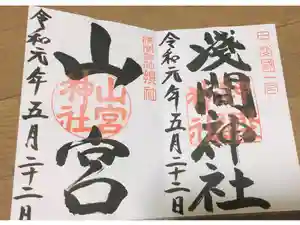 浅間神社
令和元年五月二十二日
山宮
山宮神社
令和元年五月二十二日